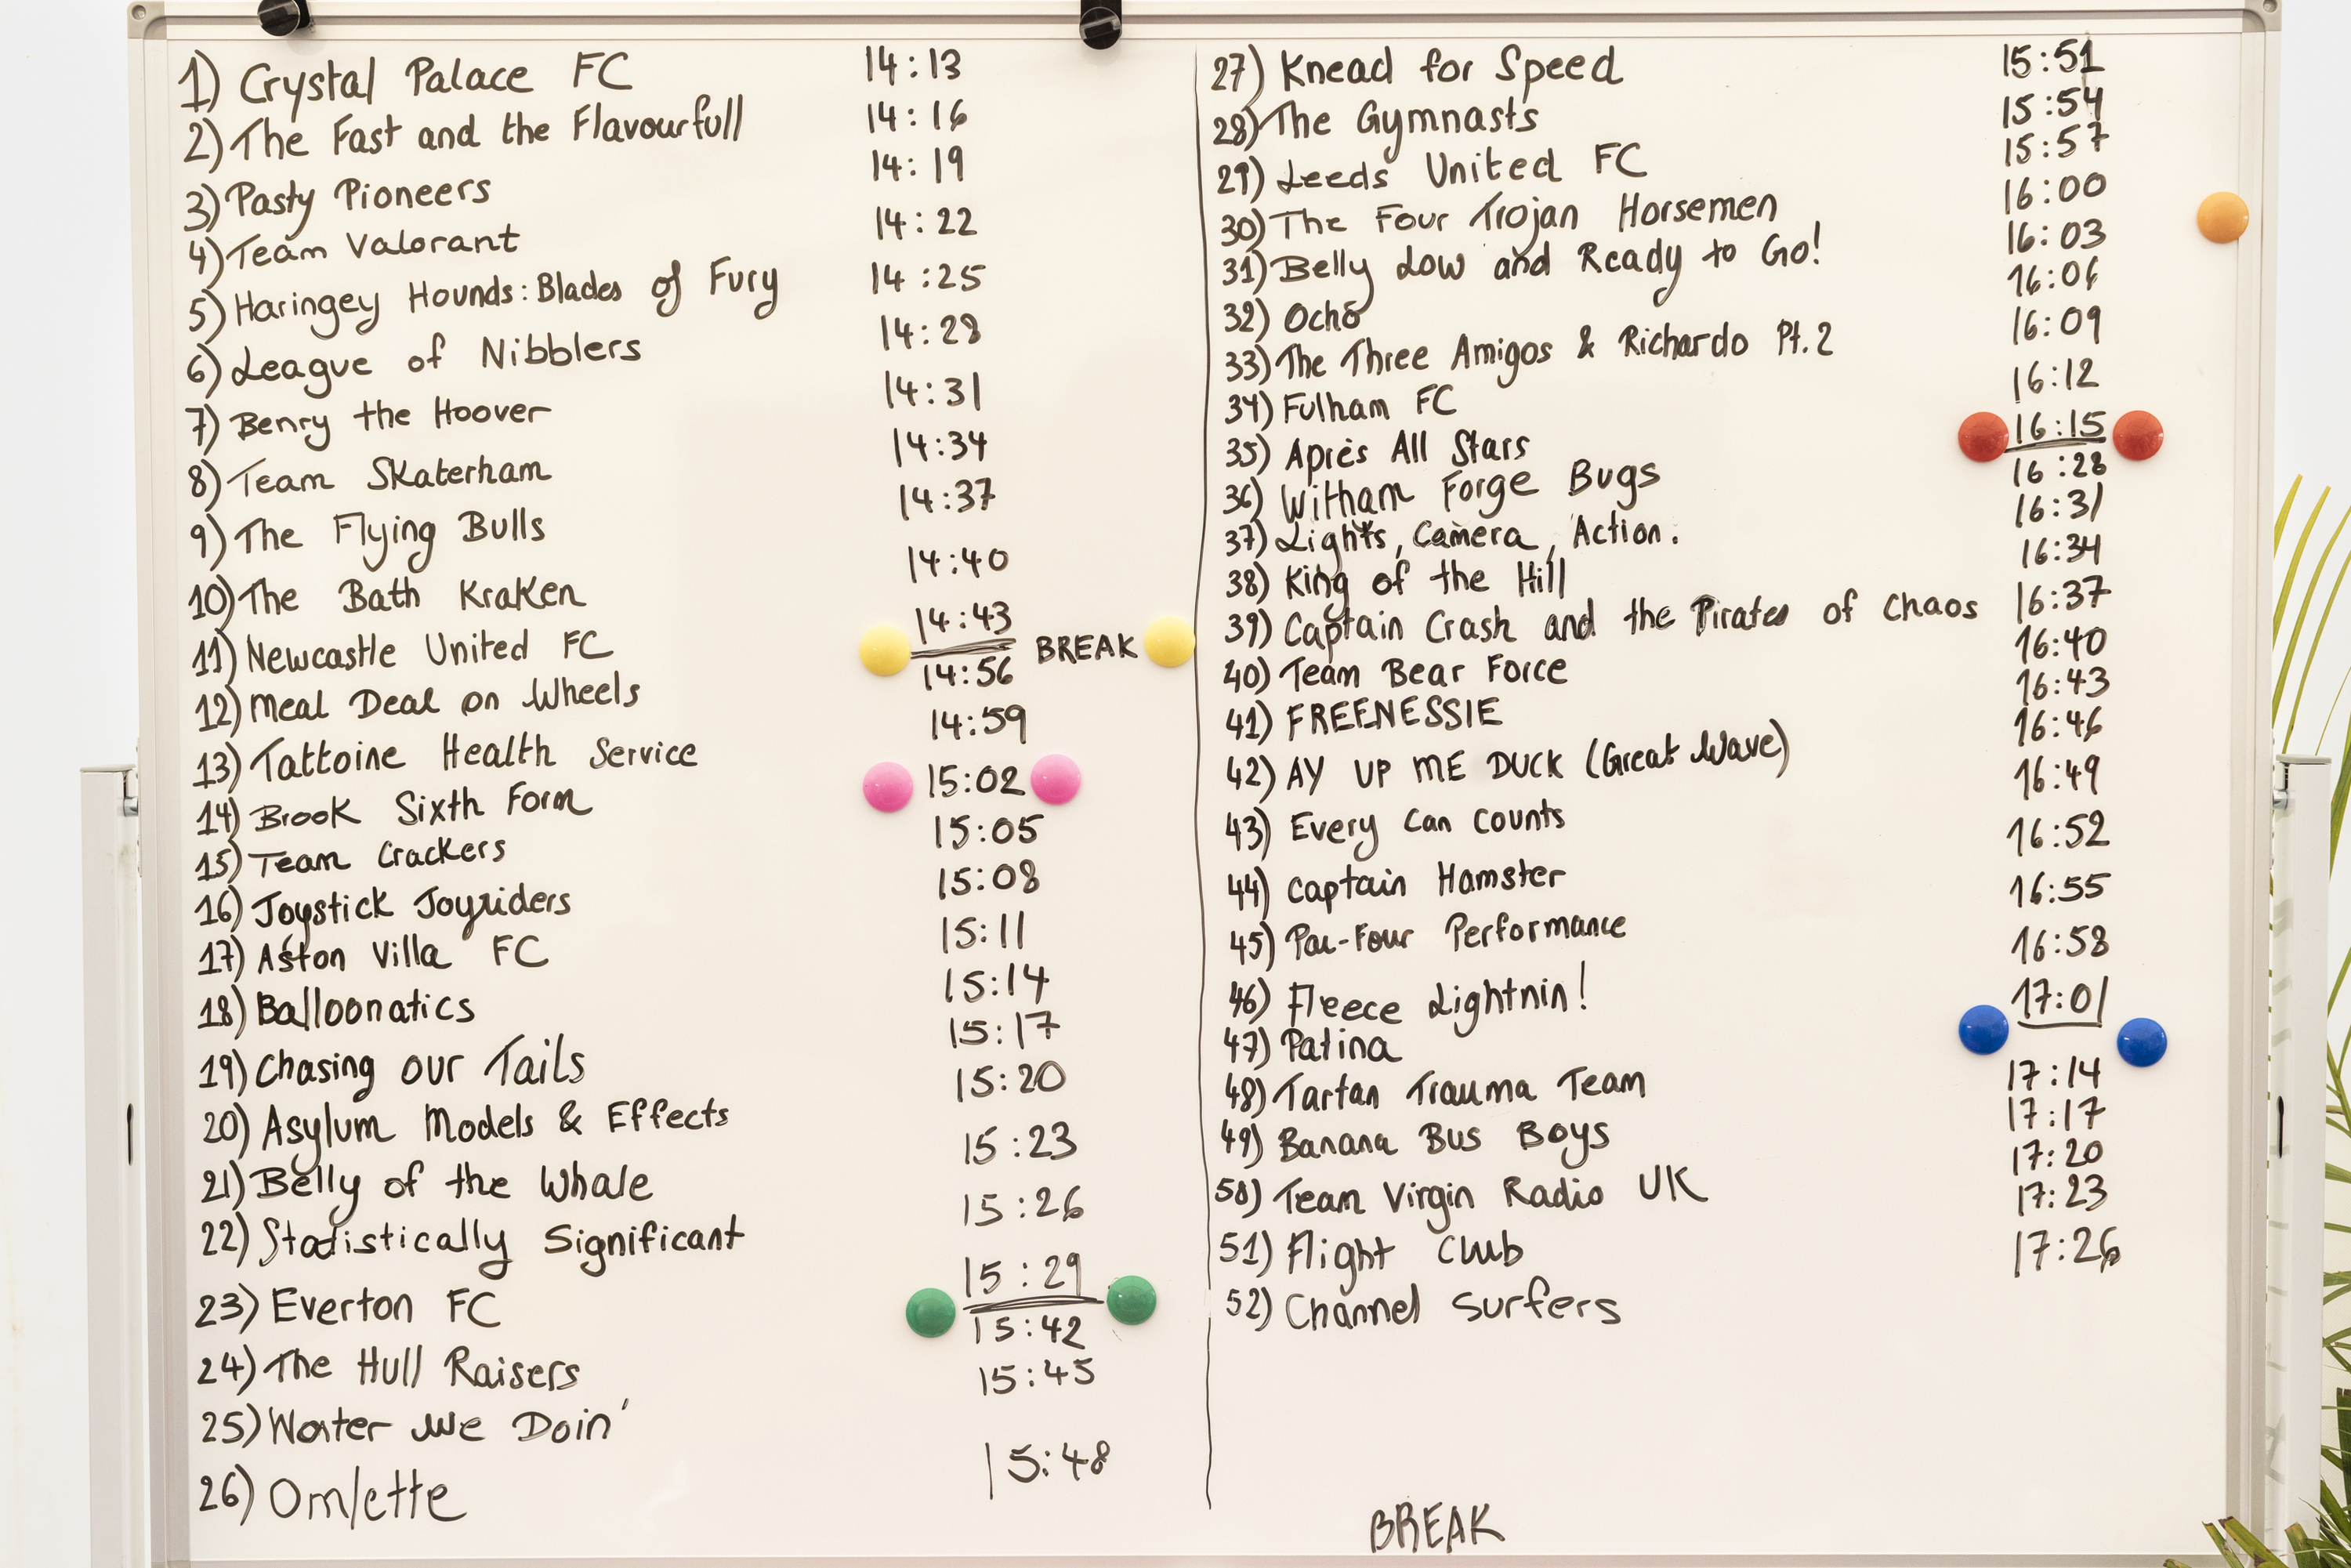 1) Crystal Palace FC 14:13
2) The Fast and the Flavourfull 14:16
3) Pasty Pioneers 14:19
4) Team Valorant 14:22
5) Haringey Hounds: Blades of Fury 14:25
6) League of Nibblers 14:28
7) Benry the Hoover 14:31
8) Team Skaterham 14:34
9) The Flying Bulls 14:37
10) The Bath Kraken 14:40
11) Newcastle United FC 14:43
BREAK
12) Meal Deal on Wheels 14:56
13) Tattoine Health Service 14:59
14) Brook Sixth Form 15:02
15) Team Crackers 15:05
16) Joystick Joyriders 15:08
17) Aston Villa FC 15:11
18) Balloonatics 15:14
19) Chasing our Tails 15:17
20) Asylum Models & Effects 15:20
21) Belly of the Whale 15:23
22) Statistically Significant 15:26
23) Everton FC 15:29
24) The Hull Raisers 15:42
25) Water We Doin' 15:45
26) Omlette 15:48
27) Knead for Speed 15:51
28) The Gymnasts 15:54
29) Leeds United FC 15:57
30) The Four Trojan Horsemen 16:00
31) Belly Low and Ready to Go! 16:03
32) Ocho 16:06
33) The Three Amigos & Richardo Pt.2 16:09
34) Fulham FC 16:12
35) Après All Stars 16:15
36) Witham Forge Bugs 16:28
37) Lights, Camera, Action. 16:31
38) King of the Hill 16:34
39) Captain Crash and the Pirates of Chaos 16:37
40) Team Bear Force 16:40
41) FREENESSIE 16:43
42) AY UP ME DUCK (Great Wave) 16:46
43) Every Can Counts 16:49
44) Captain Hamster 16:52
45) Par-Four Performance 16:55
46) Fleece Lightnin! 16:58
47) Patina 17:01
48) Tartan Trauma Team 17:14
49) Banana Bus Boys 17:17
50) Team Virgin Radio UK 17:20
51) Flight Club 17:23
52) Channel Surfers 17:26
BREAK